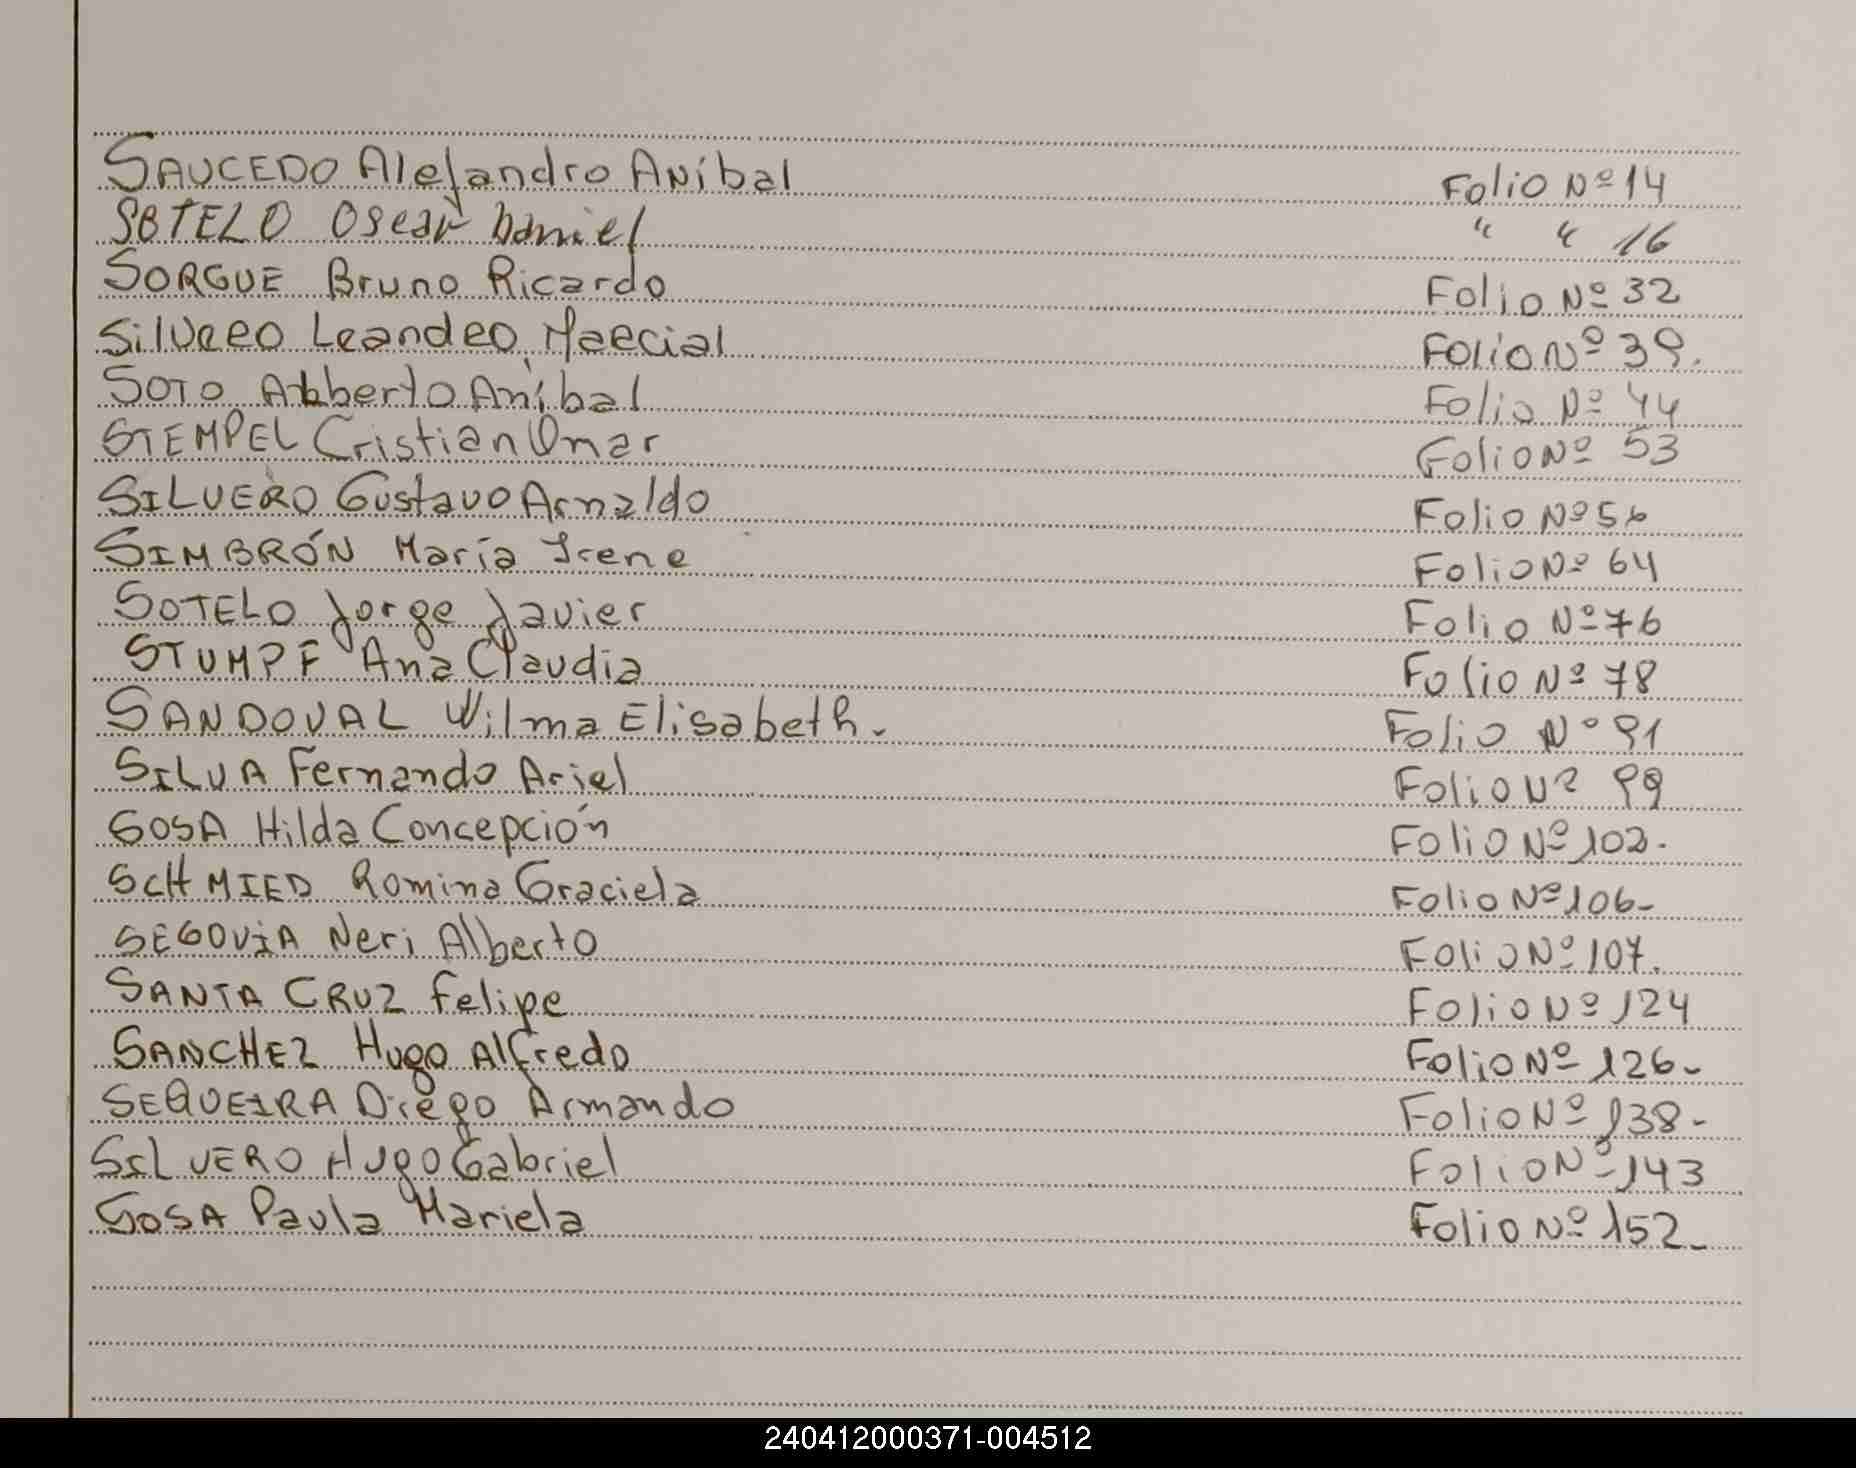 SAUCEDO Alejandro Aníbal Folio Nº 14
SOTELO Oscar Daniel " " 16
SORGUE Bruno Ricardo Folio Nº 32
Silvero Leandro Marcial Folio Nº 39.
SOTO Alberto Aníbal Folio Nº 44
STEMPEL Cristian Omar Folio Nº 53
SILVERO Gustavo Arnaldo Folio Nº 56
SIMBRÓN María Irene Folio Nº 64
SOTELO Jorge Javier Folio Nº 76
STUMPF Ana Claudia Folio Nº 78
SANDOVAL Wilma Elisabeth. Folio Nº 91
SILVA Fernando Ariel Folio Nº 99
SOSA Hilda Concepción Folio Nº 102.
SCHMIED Romina Graciela Folio Nº 106-
SEGOViA Neri Alberto Folio Nº 107.
SANTA CRUZ Felipe Folio Nº 124
SANCHEZ Hugo Alfredo Folio Nº 126-
SEQUEIRA Diego Armando Folio Nº 138-
SILVERO Hugo Gabriel Folio Nº 143
SOSA Paula Mariela Folio Nº 152-
240412000371-004512